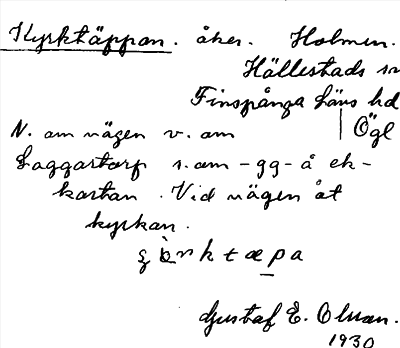 Kyrktäppan. åker. Holmen.
Hällestads sn
Finspånga läns hd
Ögl
N. om vägen v. om
Laggartorp s. om -gg- å ek-
kartan. Vid vägen åt
kyrkan.
Gustaf E. Olsson.
1930